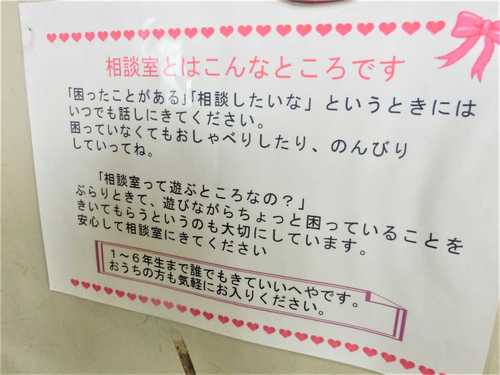 相談室とはこんなところです
「困ったことがある」「相談したいな」というときには
いつでも話しにきてください。
困っていなくてもおしゃべりしたり、のんびり
していってね。
「相談室って遊ぶところなの？」
ぶらりときて、遊びながらちょっと困っていることを
きいてもらうというのも大切にしています。
安心して相談室にきてください
１～６年生まで誰でもきていいへやです。
おうちの方も気軽にお入りください。